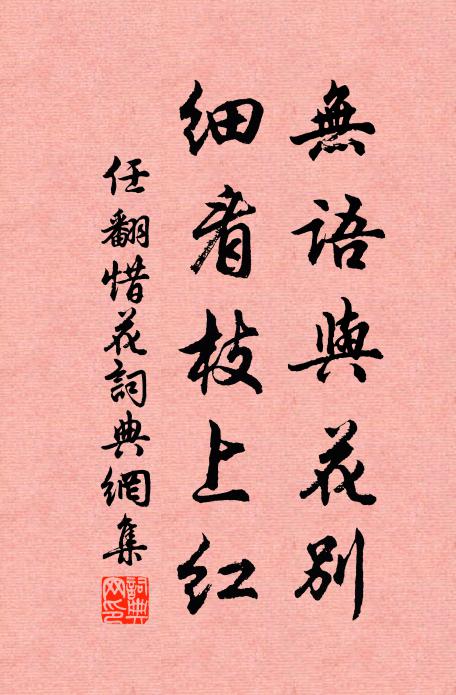 無語與花别
细看枝上红
任翻惜花詞典網集
詞典網印